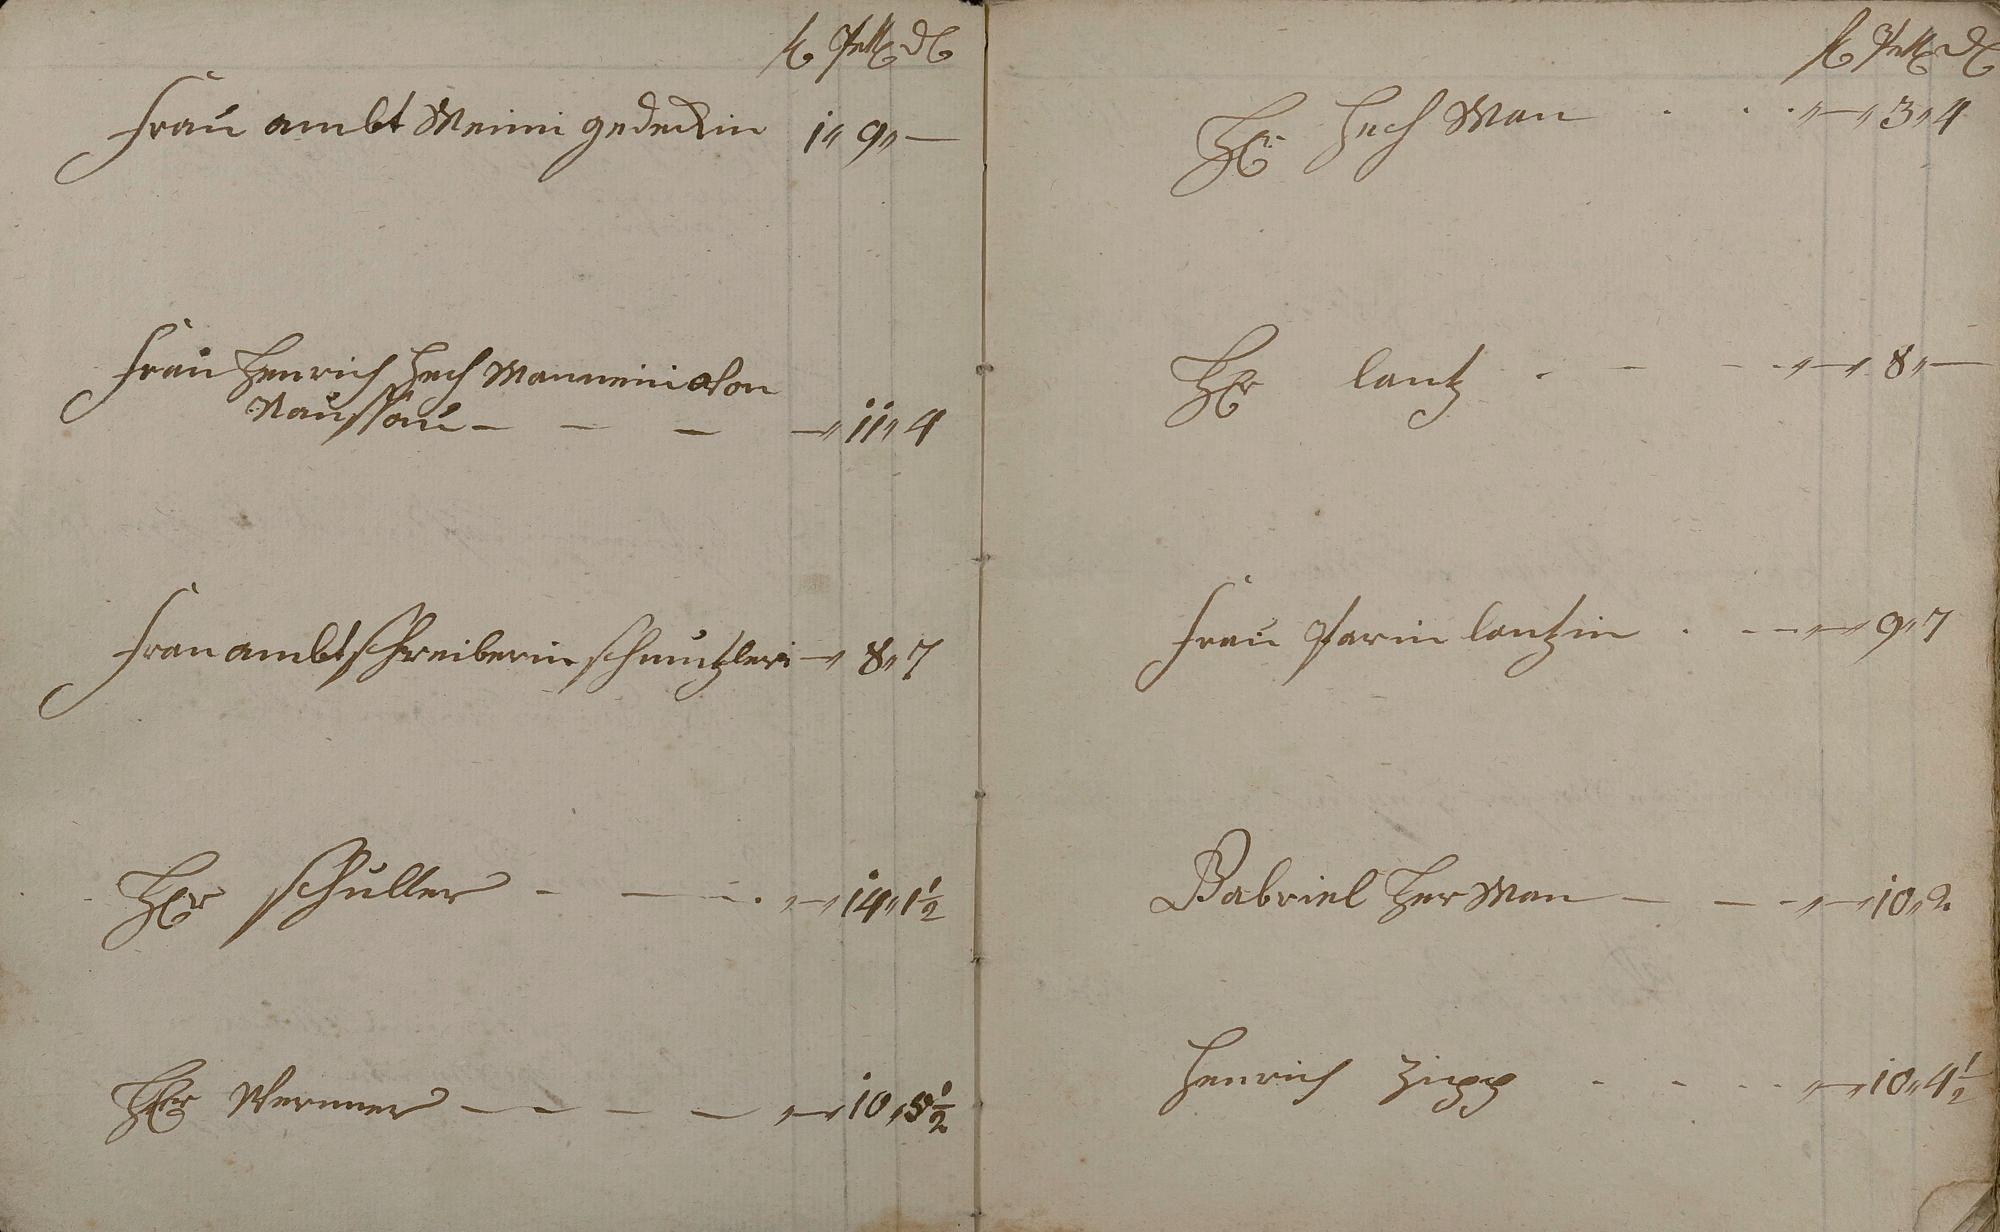 fl Pett dl
Frau ambt Meini gedeckin 1 „ 9 „ —
Frau Henrich Hech Mannin von
Naussau — — — — „ 11 „ 4
Frau ambtschreiberin schuntzleri — „ 8 „ 7
Hr schuller — — „ — „ 14 „ 1½
Hr Wernner — — — — „ — „ 10 „ 5½
fl Pett dl
Hr Hech Man . . . „ — „ 3 „ 4
Hr lantz . — — „ — „ 8 „ —
Frau Parin lantzin . — „ — „ 9 „ 7
Gabriel HerMan — — - „ — „ 10 „ 2
Henrich Zipp - - - „ — „ 10 „ 4½